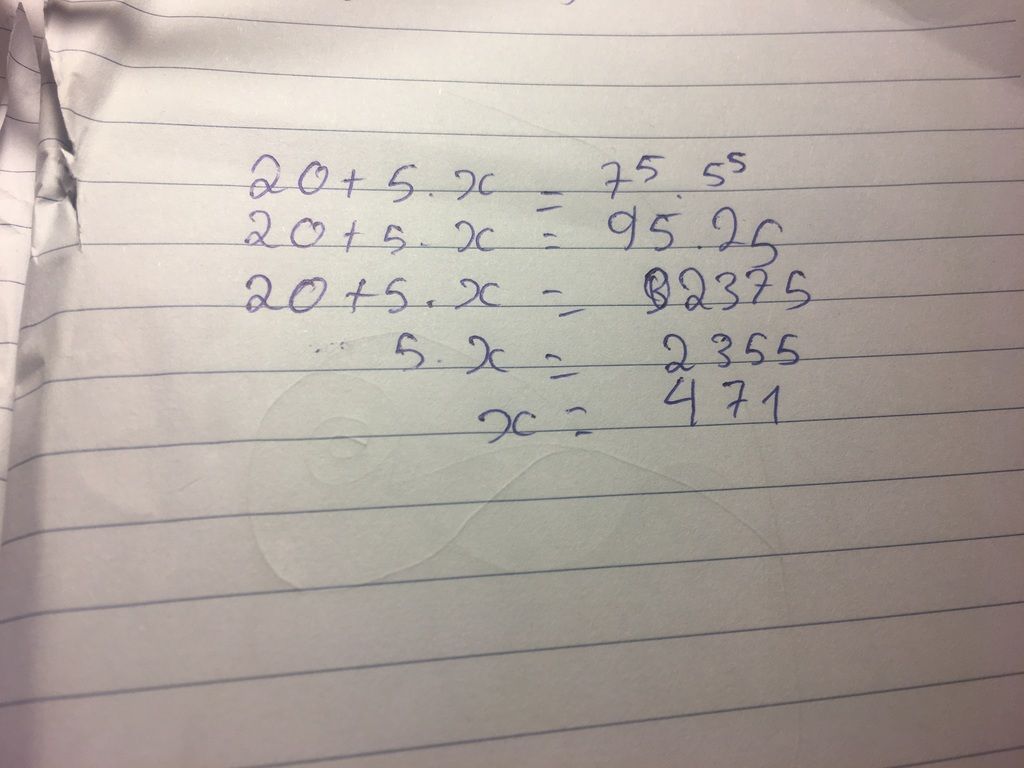 20 + 5 . x = 7⁵ . 5⁵
20 + 5 . x = 95 . 25
20 + 5 . x = 2375
5 . x = 2355
x = 471